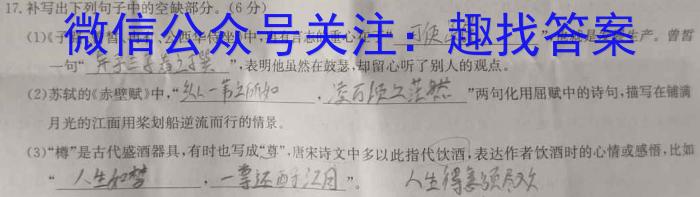 17.补写出下列句子中的空缺部分。(6分)
微信公众号关注：趣找答案
(1)《子路、曾皙、冉有、公西华侍坐》中,冉有言志的重心在于“可使 生产。曾皙
一句“异乎三子者之撰”,表明他虽然在鼓瑟,却留心听了别人的观点。
(2)苏轼的《赤壁赋》中,“纵一苇之所如,凌万顷之茫然”两句化用屈赋中的诗句,描写在铺满
月光的江面用桨划船逆流而行的情景。
(3)“樽”是古代盛酒器具,有时也写成“尊”,唐宋诗文中多以此指代饮酒,表达作者饮酒时的心情或感悟,比如
“人生如梦,一尊还酹江月”。 人生得意须尽欢